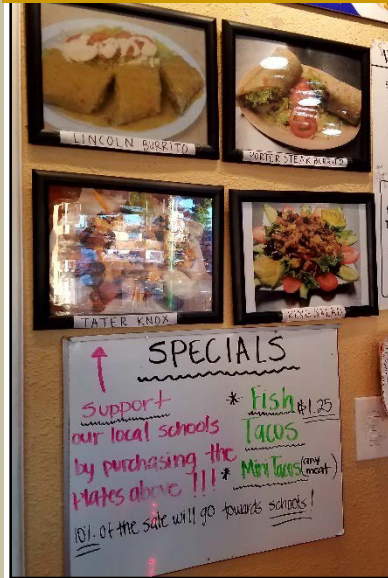 LINCOLN BURRITO
PORTER STEAK BURRITO
TATER KNOX
KING SALAD
SPECIALS
Support
our local schools
by purchasing the
Plates above !!!
* Fish $1.25
Tacos
* Mini Tacos (any meat)
10% of the sale will go towards schools!